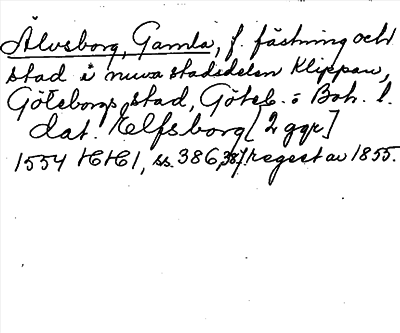 Älvsborg, Gamla, f. fästning och
stad i nuva stadsdelen Klippan,
Göteborgs stad, Göteb. o. Boh. l.
dat. Elfsborg [2 ggr]
1554 HH1, ss. 386, 387, regest av 1855.